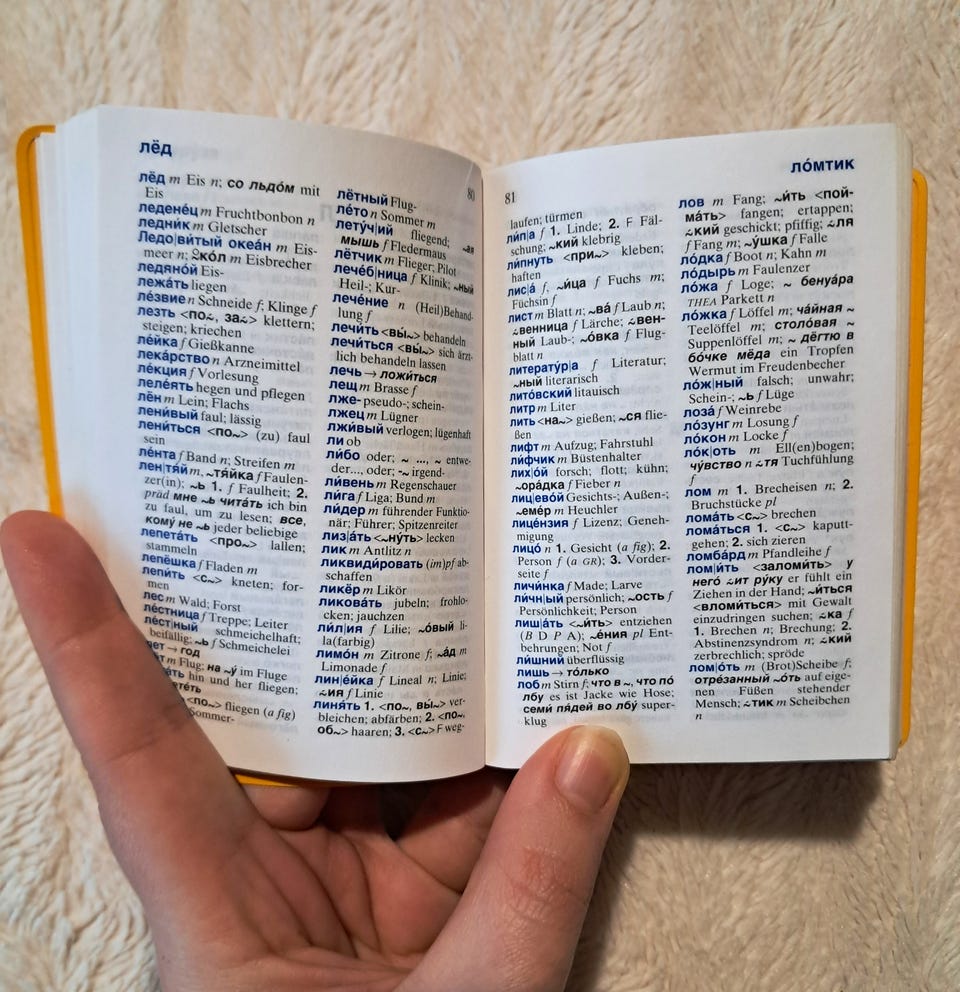 лёд
лёд m Eis n; со льдо́м mit
Eis
ледене́ц m Fruchtbonbon n
ледни́к m Gletscher
Ледо|ви́тый океа́н m Eis-
meer n; 2ко́л m Eisbrecher
ледяно́й Eis-
лежа́ть liegen
ле́звие n Schneide f; Klinge f
лезть <по~, за~> klettern;
steigen; kriechen
ле́йка f Gießkanne
лека́рство n Arzneimittel
ле́кция f Vorlesung
леле́ять hegen und pflegen
лён m Lein; Flachs
лени́вый faul; lässig
лени́ться <по~> (zu) faul
sein
ле́нта f Band n; Streifen m
лен|тя́й m, ~тя́йка f Faulen-
zer(in); ~ь 1. f Faulheit; 2.
präd мне ~ь чита́ть ich bin
zu faul, um zu lesen; все,
кому́ не ~ь jeder beliebige
лепета́ть <про~> lallen;
stammeln
лепёшка f Fladen m
лепи́ть <с~> kneten; for-
men
лес m Wald; Forst
ле́стница f Treppe; Leiter
ле́ст|ный schmeichelhaft;
beifällig; ~ь f Schmeichelei
лет → год
m Flug; на ~у́ im Fluge
hin und her fliegen;
<по~> fliegen (a fig)
Sommer-
80
ле́тный Flug-
ле́то n Sommer m
лету́ч|ий fliegend; ~ая
мышь f Fledermaus
лётчик m Flieger; Pilot
лече́б|ница f Klinik; ~ный
Heil-; Kur-
лече́ние n (Heil)Behand-
lung f
лечи́ть <вы́~> behandeln
лечи́ться <вы́~> sich ärzt-
lich behandeln lassen
лечь → ложи́ться
лещ m Brasse f
лже- pseudo-; schein-
лжец m Lügner
лжи́вый verlogen; lügenhaft
ли ob
ли́бо oder; ~ ..., ~ entwe-
der..., oder; -~ irgend-
ли́вень m Regenschauer
ли́га f Liga; Bund m
ли́дер m führender Funktio-
när; Führer; Spitzenreiter
лиз|а́ть <~ну́ть> lecken
лик m Antlitz n
ликвиди́ровать (im)pf ab-
schaffen
ликёр m Likör
ликова́ть jubeln; frohlo-
cken; jauchzen
ли́л|ия f Lilie; ~о́вый li-
la(farbig)
лимо́н m Zitrone f; ~а́д m
Limonade f
лин|е́йка f Lineal n; Linie;
~ия f Linie
линя́ть 1. <по~, вы́~> ver-
bleichen; abfärben; 2. <по~,
об~> haaren; 3. <с~> F weg-
81
laufen; türmen
ли́п|а f 1. Linde; 2. F Fäl-
schung; ~кий klebrig
ли́пнуть <при~> kleben;
haften
лис|а́ f, ~и́ца f Fuchs m;
Füchsin f
лист m Blatt n; ~ва́ f Laub n;
~венница f Lärche; ~вен-
ный Laub-; ~о́вка f Flug-
blatt n
литерату́р|а f Literatur;
~ный literarisch
лито́вский litauisch
литр m Liter
лить <на~> gießen; ~ся flie-
ßen
лифт m Aufzug; Fahrstuhl
ли́фчик m Büstenhalter
лих|о́й forsch; flott; kühn;
~ора́дка f Fieber n
лиц|ево́й Gesichts-; Außen-;
~еме́р m Heuchler
лице́нзия f Lizenz; Geneh-
migung
лицо́ n 1. Gesicht (a fig); 2.
Person f (a GR); 3. Vorder-
seite f
личи́нка f Made; Larve
ли́чн|ый persönlich; ~ость f
Persönlichkeit; Person
лиш|а́ть <~и́ть> entziehen
(B D P A); ~е́ния pl Ent-
behrungen; Not f
ли́шний überflüssig
лишь → то́лько
лоб m Stirn f; что в ~, что по́
лбу es ist Jacke wie Hose;
семи́ пя́дей во лбу́ super-
klug
ло́мтик
лов m Fang; ~и́ть <пой-
ма́ть> fangen; ertappen;
~кий geschickt; pfiffig; ~ля
f Fang m; ~у́шка f Falle
ло́дка f Boot n; Kahn m
ло́дырь m Faulenzer
ло́жа f Loge; ~ бенуа́ра
THEA Parkett n
ло́жка f Löffel m; ча́йная ~
Teelöffel m; столо́вая ~
Suppenlöffel m; ~ дёгтю в
бо́чке мёда ein Tropfen
Wermut im Freudenbecher
ло́ж|ный falsch; unwahr;
Schein-; ~ь f Lüge
лоза́ f Weinrebe
ло́зунг m Losung f
ло́кон m Locke f
ло́к|оть m Ell(en)bogen;
чу́вство n ~тя Tuchfühlung
f
лом m 1. Brecheisen n; 2.
Bruchstücke pl
лома́ть <с~> brechen
лома́ться 1. <с~> kaputt-
gehen; 2. sich zieren
ломба́рд m Pfandleihe f
лом|и́ть <заломи́ть> у
него́ ~ит ру́ку er fühlt ein
Ziehen in der Hand; ~и́ться
<вломи́ться> mit Gewalt
einzudringen suchen; ~ка f
1. Brechen n; Brechung; 2.
Abstinenzsyndrom n; ~кий
zerbrechlich; spröde
лом|о́ть m (Brot)Scheibe f;
отре́занный ~о́ть auf eige-
nen Füßen stehender
Mensch; ~тик m Scheibchen
n